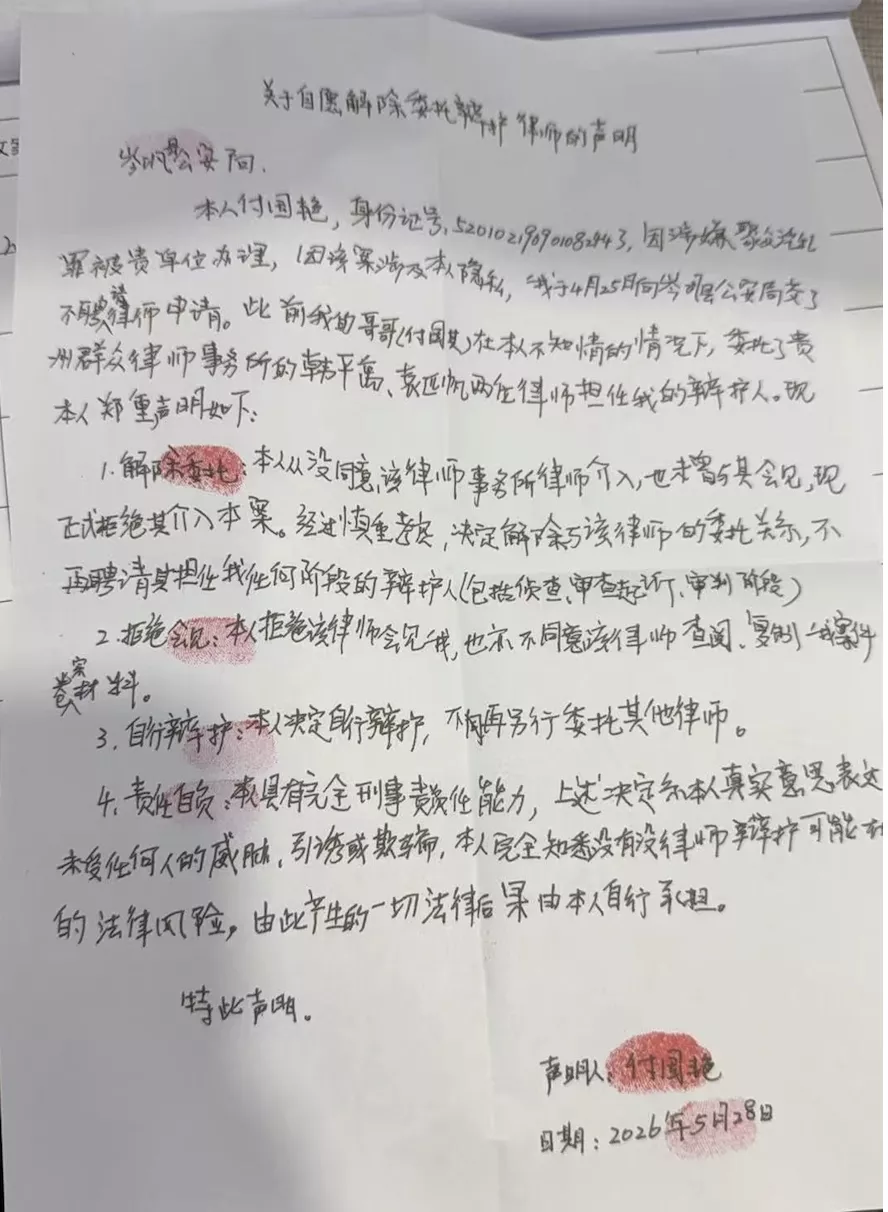 关于自愿解除委托辩护律师的声明
岑巩县公安局:
本人付国艳,身份证号:520102196901082443,因涉嫌聚众淫乱
罪被贵单位办理,因该案涉及本人隐私,我于4月25日向岑巩县公安局交了
不聘请律师申请。此前我的哥哥(付国其)在本人不知情的情况下,委托了贵
州群众律师事务所的韩平离、袁匹帆两位律师担任我的辩护人。现
本人郑重声明如下:
1.解除委托:本人从没同意该律师事务所律师介入,也未曾与其会见,现
正式拒绝其介入本案。经过慎重考虑,决定解除与该律师的委托关系,不
再聘请其担任我任何阶段的辩护人(包括侦查、审查起诉、审判阶段)
2.拒绝会见:本人拒绝该律师会见我,也亦不同意该律师查阅、复制我案件
卷案材料。
3.自行辩护:本人决定自行辩护,不再另行委托其他律师。
4.责任自负:本人具有完全刑事责任能力,上述决定系本人真实意思表达
未受任何人的威胁、引诱或欺骗,本人完全知悉没有没律师辩护可能
的法律风险,由此产生的一切法律后果由本人自行承担。
特此声明。
声明人:付国艳
日期:2026年5月28日